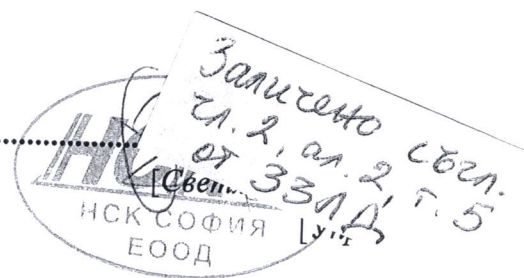 Заличено съгл.
чл. 2, ал. 2, т. 5
от ЗЗЛД
НСК СОФИЯ
ЕООД